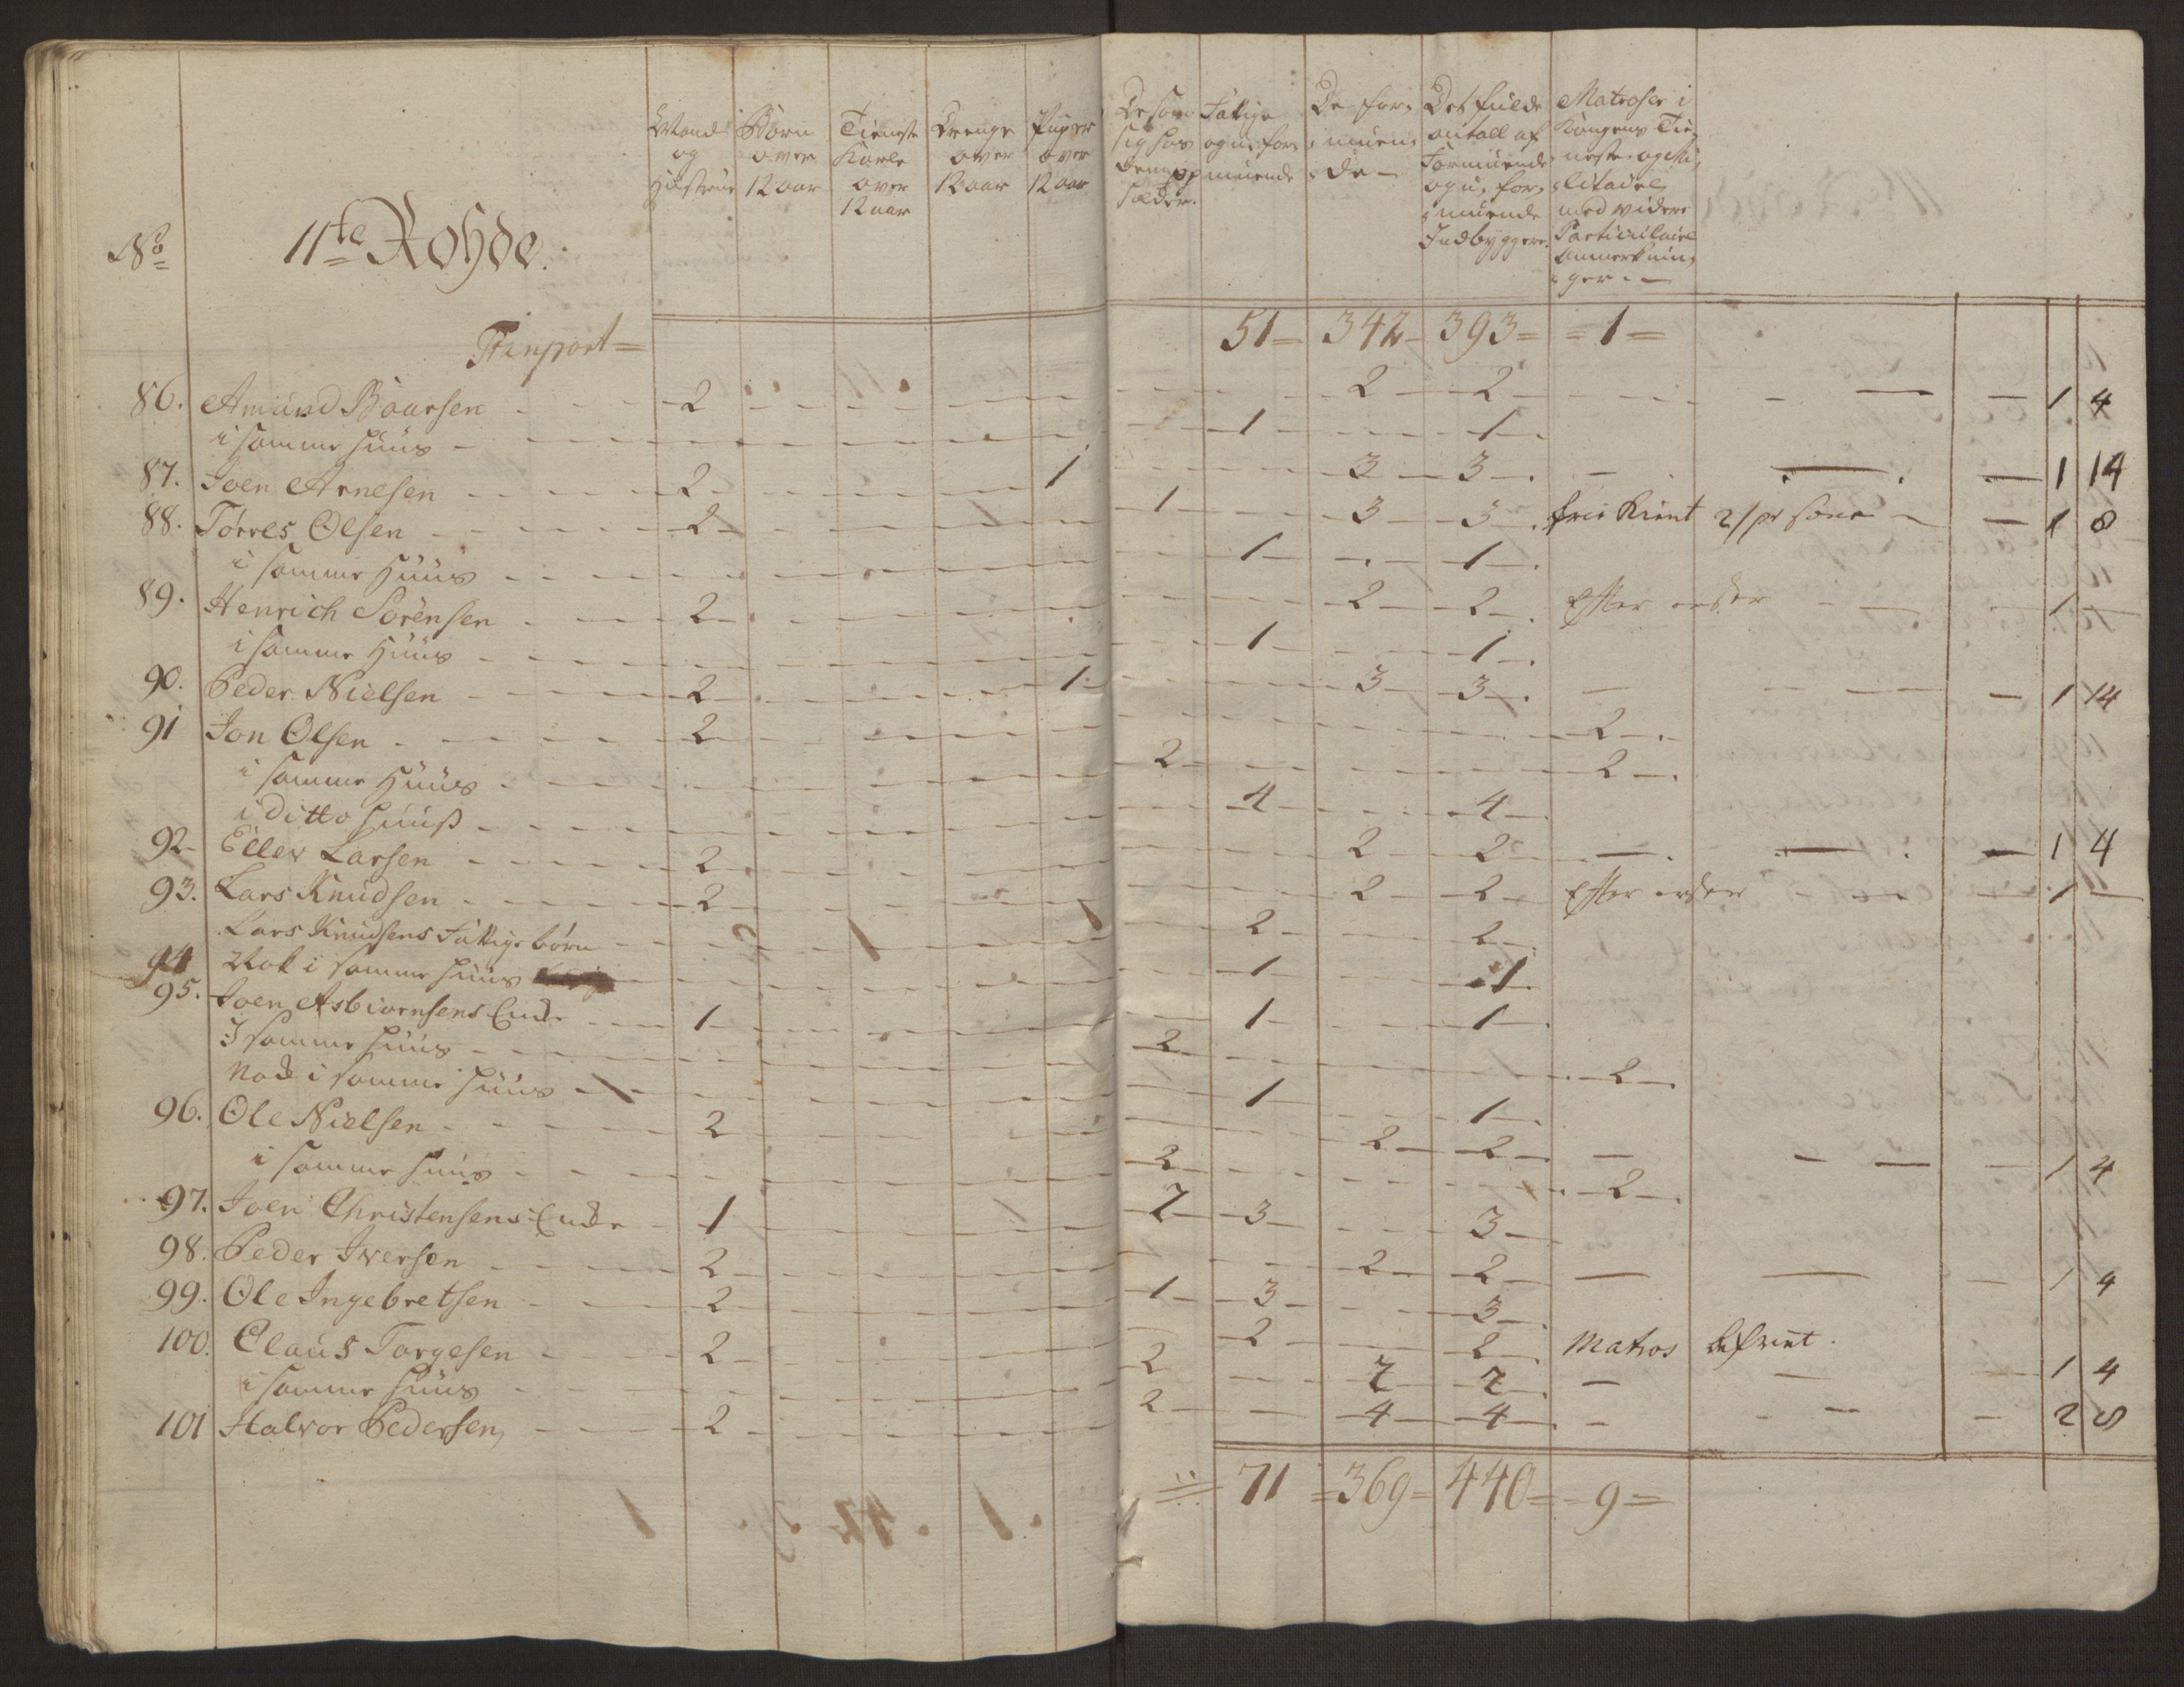 No 11te Rohde.
Mand og Hustrue
Børn over 12 aar
Tieneste Karle over 12 aar
Drenge over 12 aar
Piiger over 12 aar
De som sig hos dem opholder.
Fattige og u: for: muende
De for: muen: de
Det fulde antall af Formuende og u: for: muende Indbyggere.
Matroser i Kongens Tie: neste og Mi: litaire med videre Particulaire Anmerknin: ger
Transport = 51 - 342 - 393 = = 1 =
86. Amund Boarsen 2 2 2 1 4
i samme Huus 1 1
87. Joen Arnesen 2 1 3 3 1 14
88. Tørres Olsen 2 1 3 3 1 8
i samme Huus 1 1
89. Henrich Sørensen 2 2 2 Efter order 1
i samme Huus 1 1
90. Peder Nielsen 2 1 3 3 1 14
91 Jon Olsen 2 2
i samme Huus 2 2
i Ditto Huus 4 4
92 Eller Larsen 2 2 2 1 4
93. Lars Knudsen 2 2 2 Efter order 1
Lars Knudsens Fattige børn 2 2
94 Nok i samme Huus 1 1
95. Joen Asbiørnsens Enke 1 1 1
I samme Huus 2 2
Nok i samme Huus 1 1
96. Ole Nielsen 2 2 2 1 4
i samme Huus 2 2
97. Joen Christensens Enke 1 2 3 3
98. Peder Iversen 2 2 2 1 4
99. Ole Ingebretsen 2 1 3 3
100. Claus Torgesen 2 2 2 Matros
i samme Huus 2 2 2 1 4
101 Halvor Pedersen 2 2 4 4 2 8
71 = 369 = 440 = = 9 =